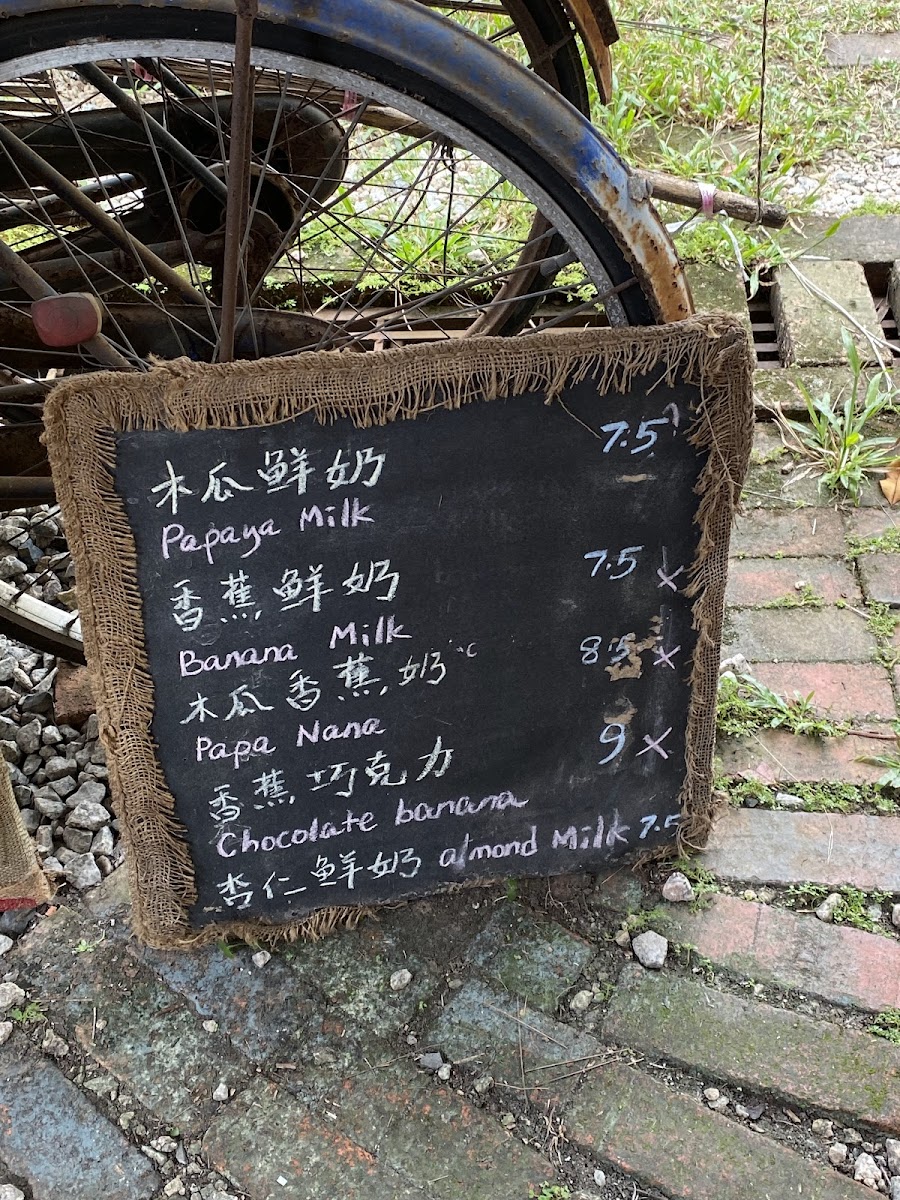 木瓜鲜奶 7.5
Papaya Milk
香蕉鲜奶 7.5 x
Banana Milk
木瓜香蕉奶 8.5 x
Papa Nana
香蕉巧克力 9 x
Chocolate banana
杏仁鲜奶 almond Milk 7.5